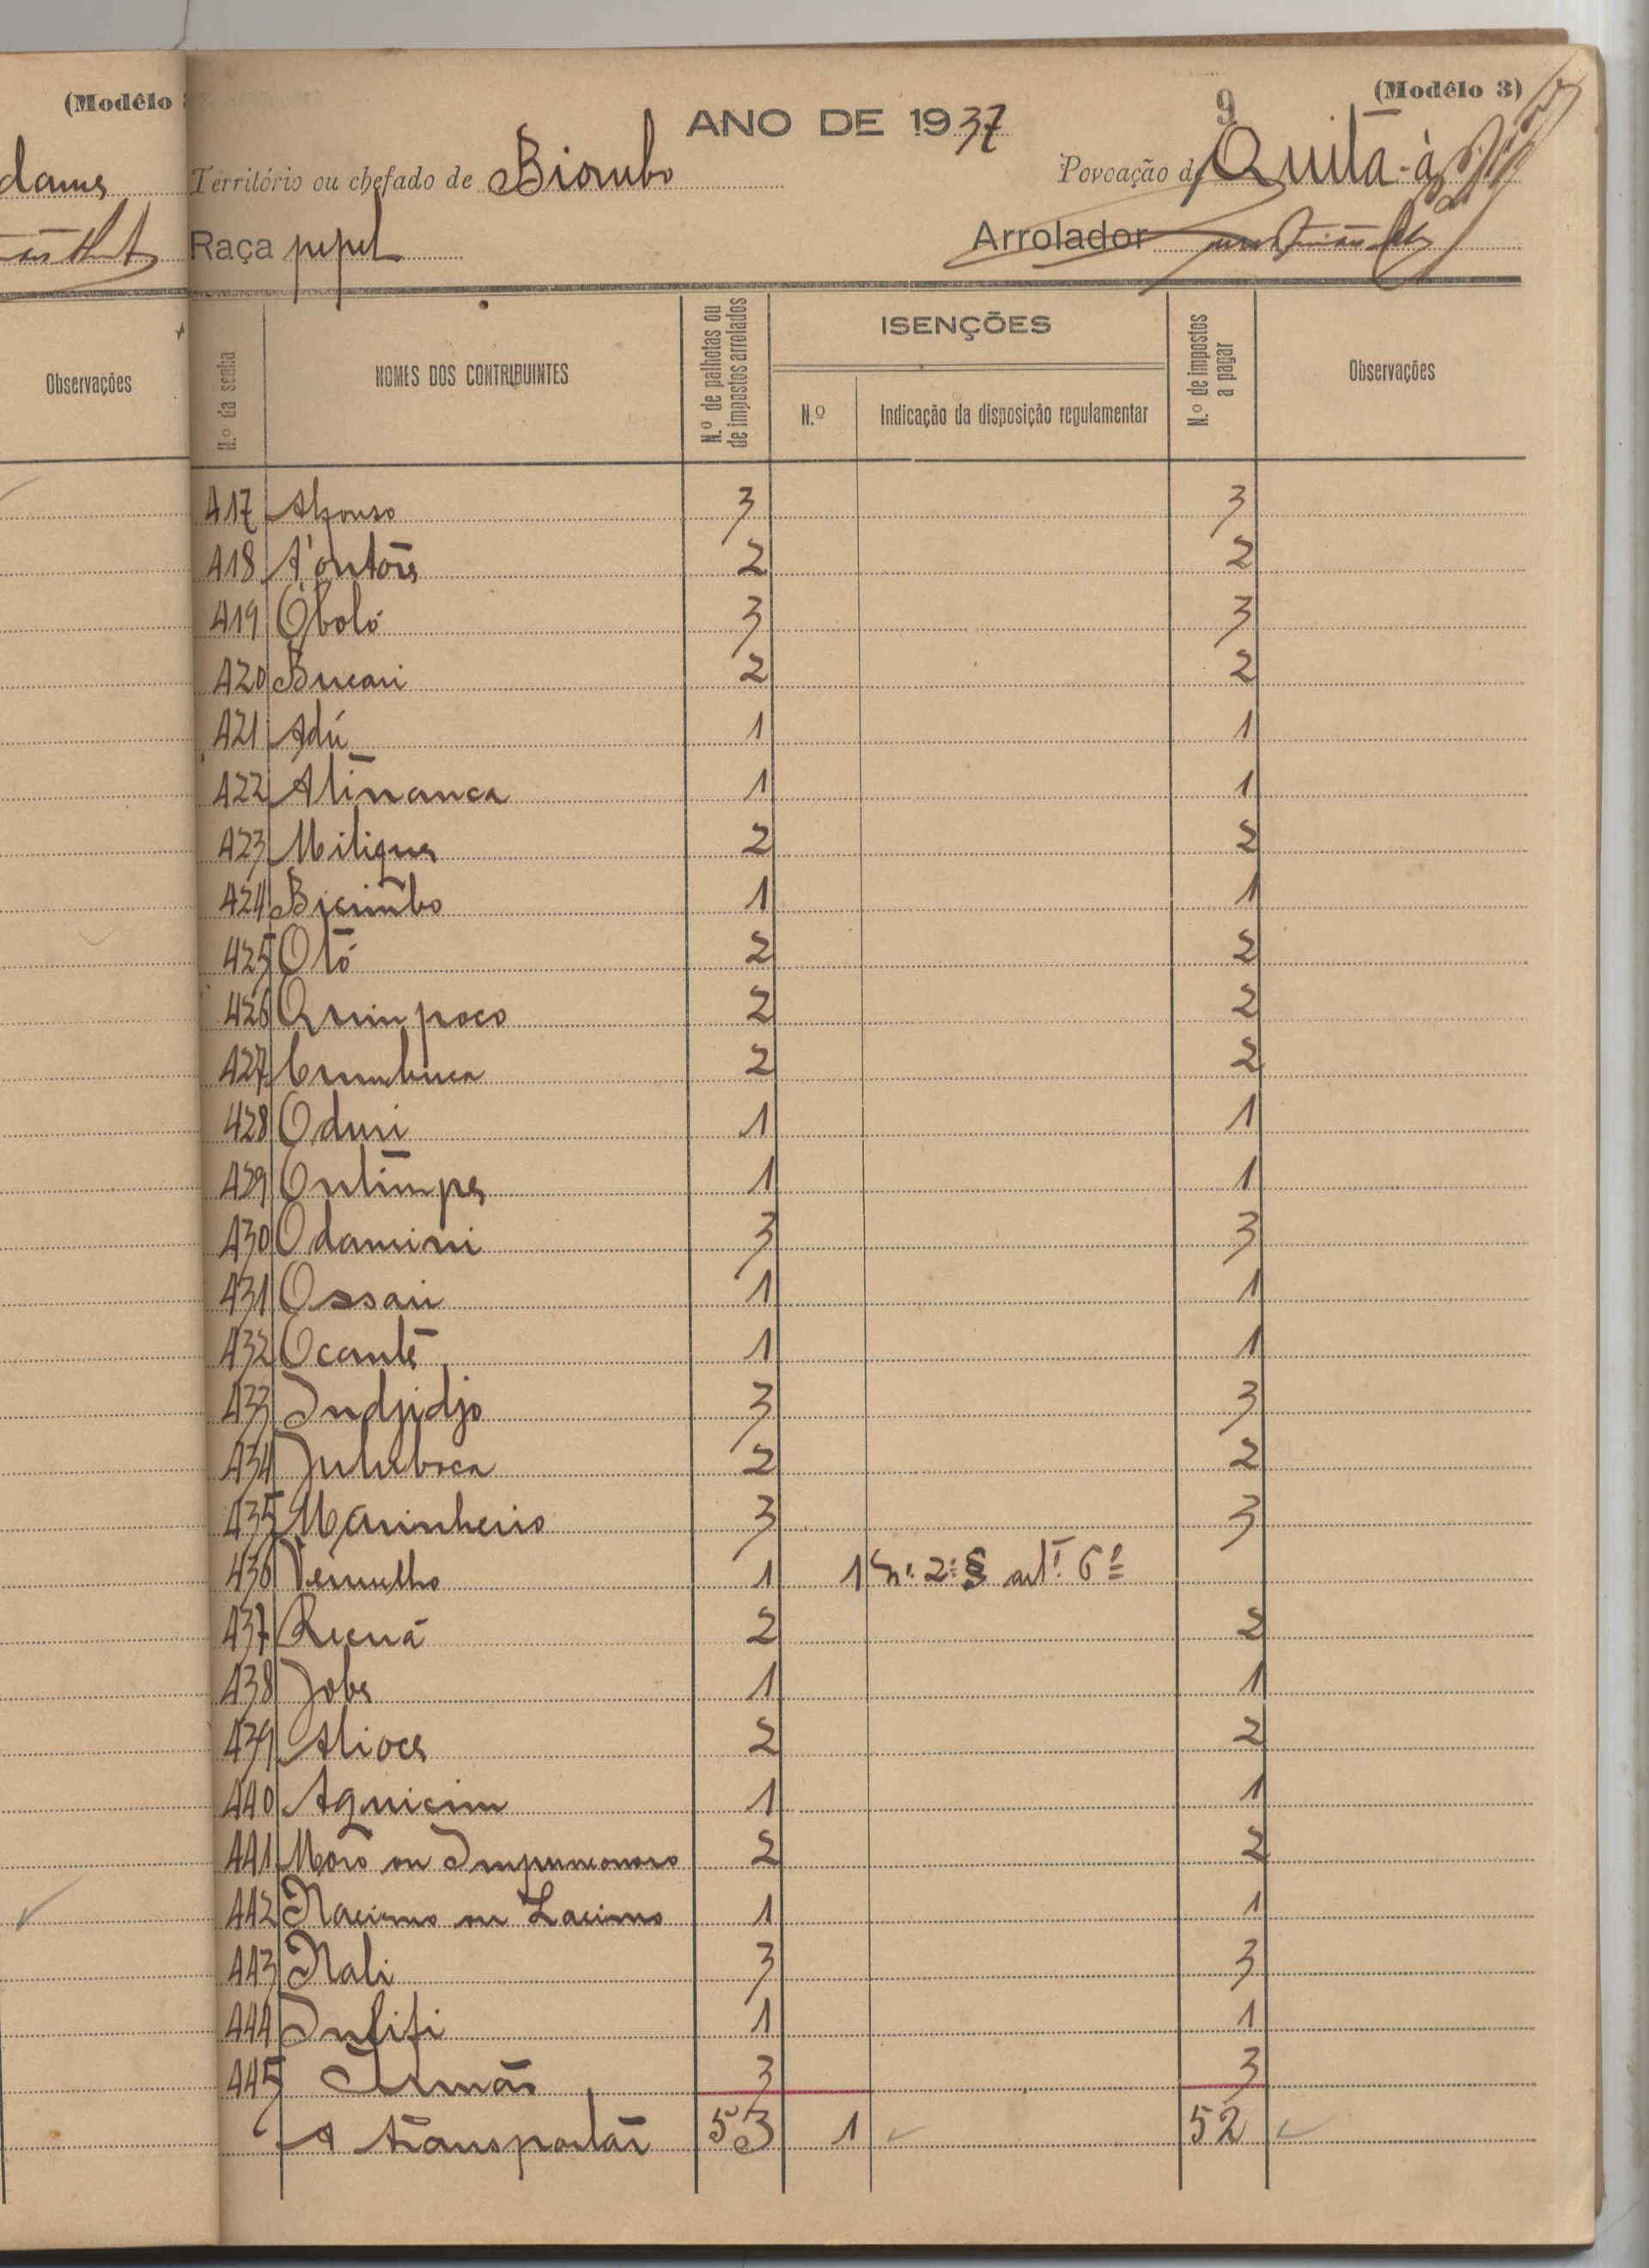 (Modêlo
dams
Observações
(Modêlo 3)
9
ANO DE 1937
Território ou chefado de Biombo
Povoação de Quitá-à
Raça pepel
Arrolador
N.º da senha
NOMES DOS CONTRIBUINTES
N.º de palhotas ou de impostos arrolados
ISENÇÕES
N.º
Indicação da disposição regulamentar
N.º de impostos a pagar
Observações
417 Afonso 3 3
418 2 2
419 Óboló 3 3
420 Bucari 2 2
421 Adú 1 1
422 Atinanca 1 1
423 Miliques 2 2
424 Bicimbo 1 1
425 Otó 2 2
426 Quimpoco 2 2
427 Cumbuca 2 2
428 Oduri 1 1
429 Ontimpes 1 1
430 Odamini 3 3
431 Ossau 1 1
432 Ocanté 1 1
433 Indjidjo 3 3
434 2 2
435 Marinheiro 3 3
436 Vermelho 1 1 n.º 2.º § art.º 6.º
437 Quená 2 2
438 Jobe 1 1
439 Alioce 2 2
440 Aquicim 1 1
441 Moro ou 2 2
442 Nacimo ou Lacimo 1 1
443 Nali 3 3
444 Infifi 1 1
445 3 3
A transportar 53 1 52